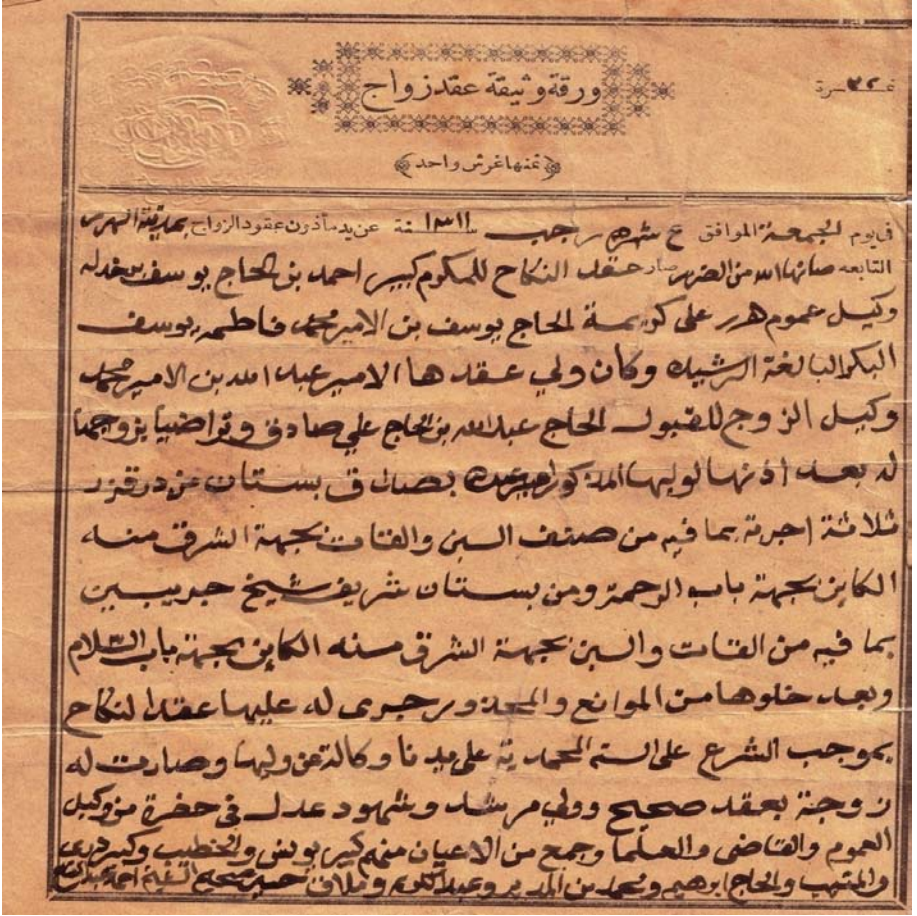 نمرة ٣٢
ورقة وثيقة عقد زواج
ثمنها غرش واحد
في يوم الجمعة الموافق ع شهر رجب سنة ١٣١١ عن يد مأذون عقود الزواج بمدينة الهرر
التابعه صانها الله من الضرر صار عقد النكاح للمكرم كبير احمد بن الحاج يوسف
وكيل عموم هرر على كريمة الحاج يوسف بن الامير محمد فاطمه يوسف
البكر البالغة الرشيده وكان ولي عقدها الامير عبد الله بن الامير محمد
وكيل الزوج للقبول الحاج عبد الله بن الحاج علي صادق وتراضيا بزوجها
له بعد اذنها لوليها المذكور بصداق بستان
ثلاثة اجربة بما فيه من صنف البن والقات بجهة الشرق منه
الكاين بجهة باب الرحمة ومن بستان شريف شيخ
بما فيه من القات والبن بجهة الشرق منه الكاين بجهة باب السلام
وبعد خلوها من الموانع والمحذور جرى له عليها عقد النكاح
بموجب الشرع على السنه المحمدية على يدنا وكالة عن وليها وصارت له
زوجة بعقد صحيح وولي مرشد وشهود عدل في حضرة من وكيل
العموم والقاضي والعلما وجمع من الاعيان منهم كبير يونس والخطيب وكبير
والحاج ابرهيم ومحمد بن المدير وعبد